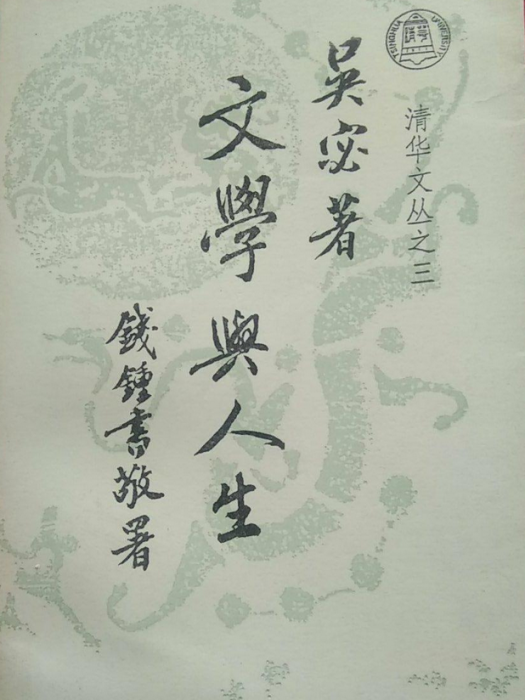 清华文丛之三
吳宓著
文學與人生
錢鍾書敬署
TSINGHUA UNIVERSITY